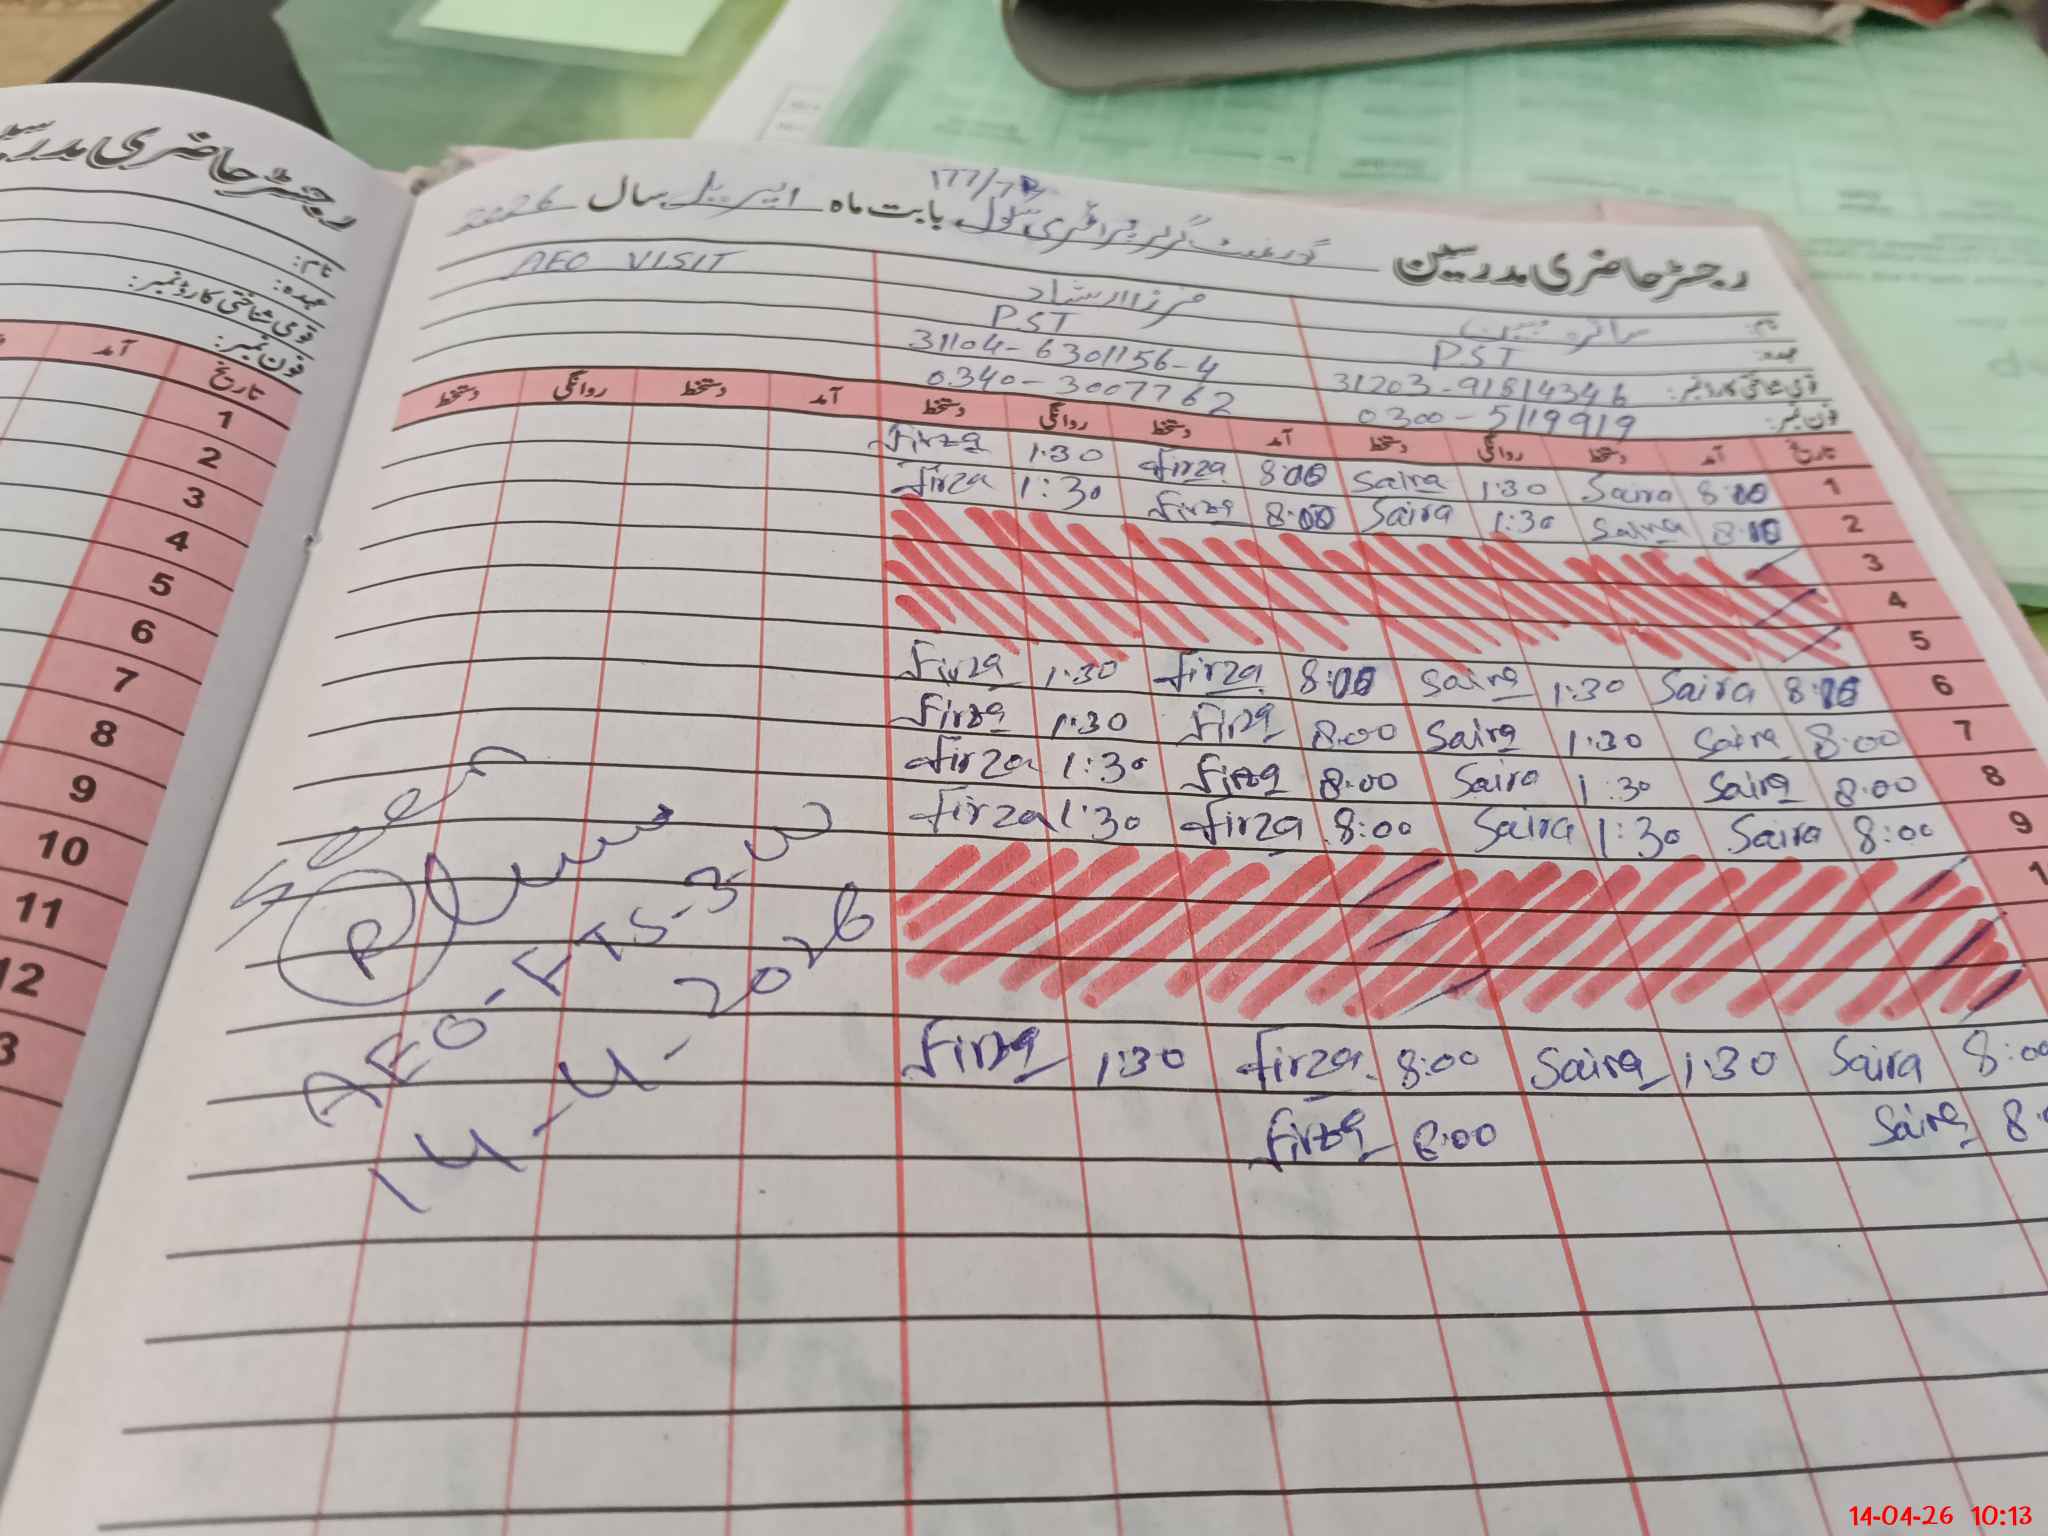 رجسٹر حاضری مدرسین گورنمنٹ گرلز پرائمری سکول 177/7R بابت ماہ اپریل سال 2026
نام: سائرہ مبین فرزا ارشاد AEO VISIT
عہدہ: PST PST
قومی شناختی کارڈ نمبر: 31203-9181434-6 31104-6301156-4
فون نمبر: 0300-5119919 0340-3007762
تاریخ آمد دستخط روانگی دستخط آمد دستخط روانگی دستخط آمد دستخط روانگی دستخط
1 8:00 Saira 1:30 Saira 8:00 firza 1:30 firza
2 8:00 Saira 1:30 Saira 8:00 firza 1:30 firza
3
4
5
6 8:00 Saira 1:30 Saira 8:00 firza 1:30 firza
7 8:00 Saira 1:30 Saira 8:00 firza 1:30 firza
8 8:00 Saira 1:30 Saira 8:00 firza 1:30 firza
9 8:00 Saira 1:30 Saira 8:00 firza 1:30 firza
8:00 Saira 1:30 Saira 8:00 firza 1:30 firza
Saira 8:00 firza
Seen
P
14-4-2026
رجسٹر حاضری
نام:
عہدہ:
قومی شناختی کارڈ نمبر:
فون نمبر:
تاریخ آمد
1
2
3
4
5
6
7
8
9
10
11
12
14-04-26 10:13